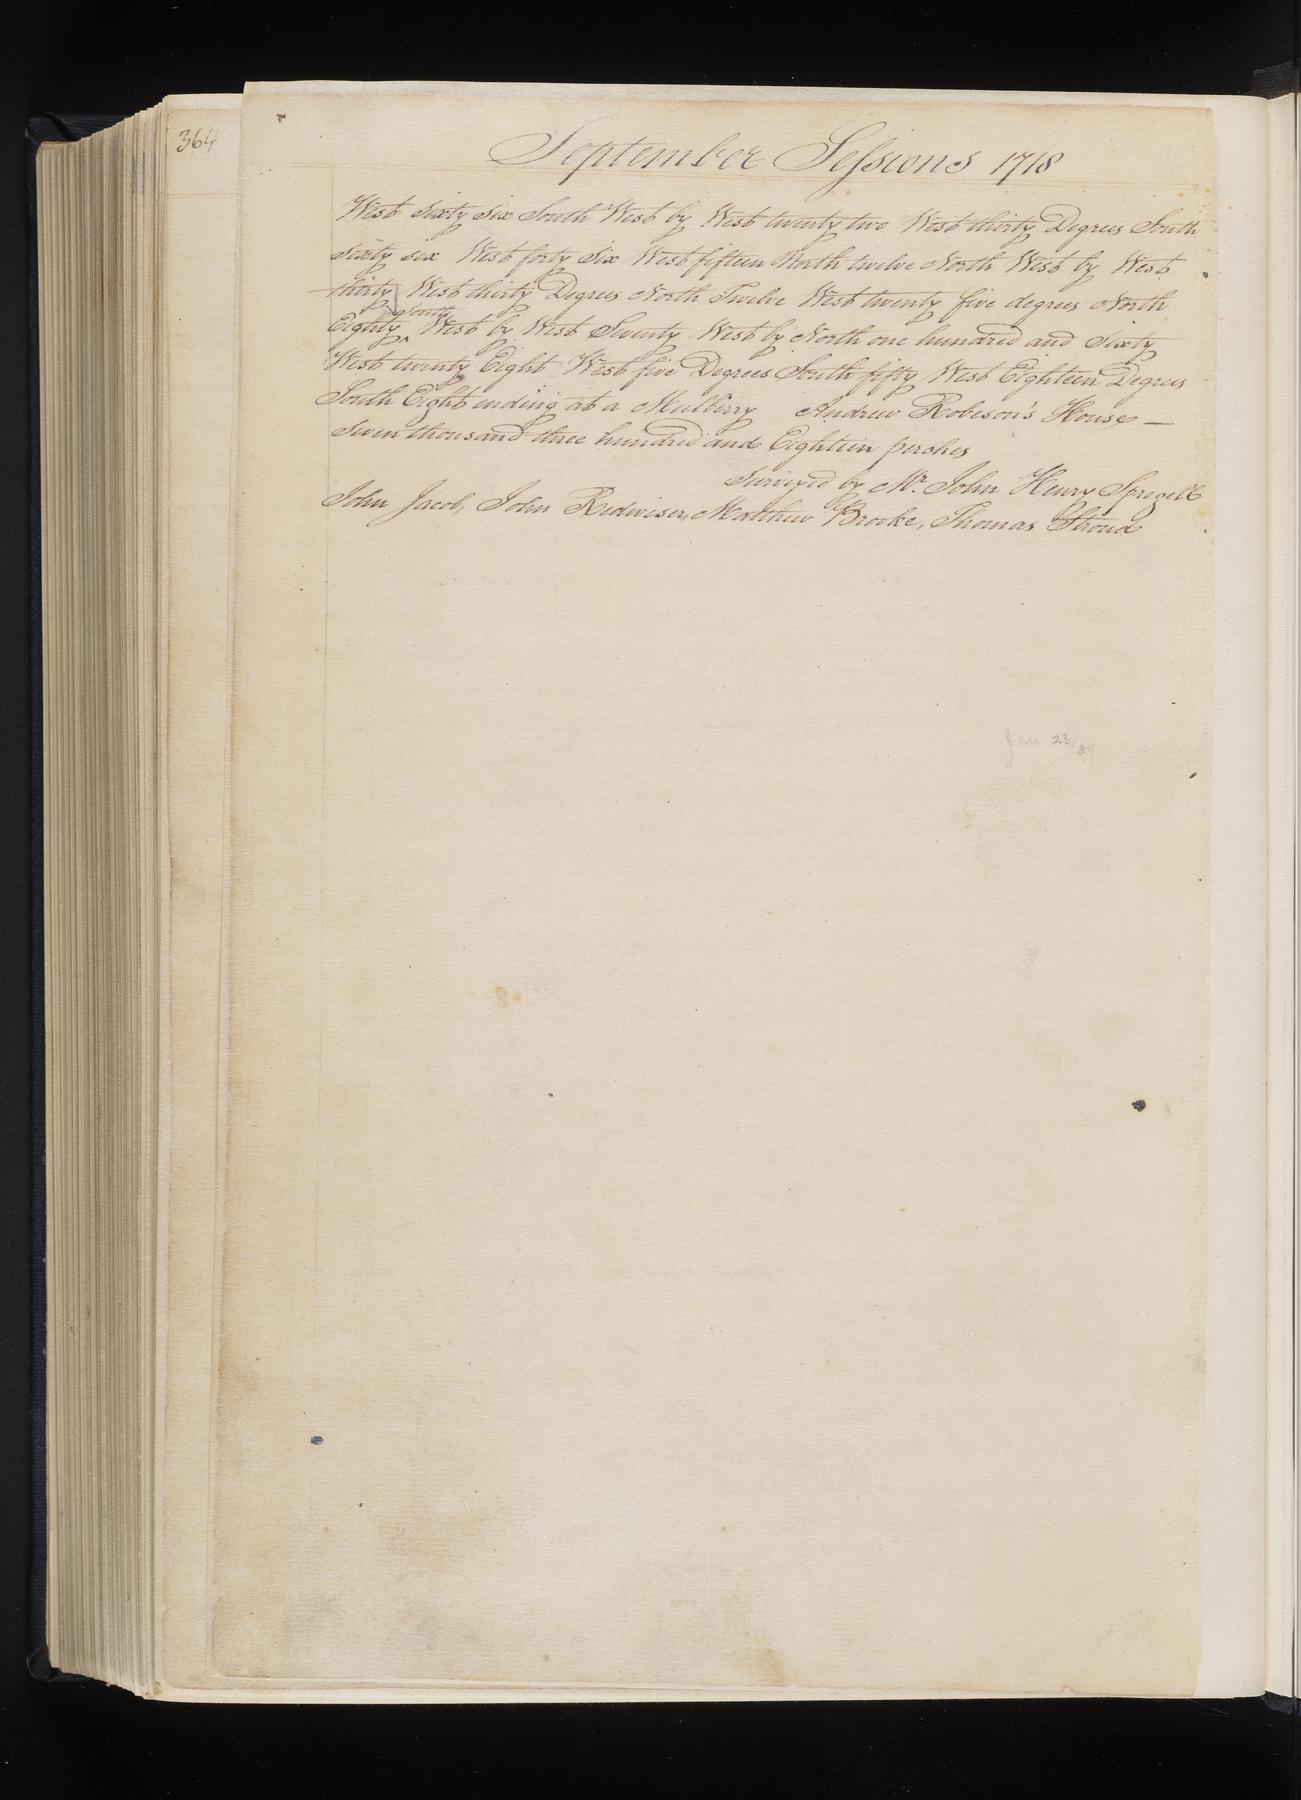 364
September Sessions 1718
West Sixty Six South West by West twenty two West thirty Degrees South
Sixty six West forty Six West fifteen North twelve North West by West
thirty West thirty Degrees North Twelve West twenty five degrees North
South
Eighty West by West Seventy West by North one hundred and Sixty
West twenty Eight West five Degrees South fifty West Eighteen Degrees
South Eight ending at a Mulberry Andrew Robeson's House —
Seven thousand three hundred and Eighteen perches
Surveyed by Mr. John Henry Sprogell
John Jacob, John Rediviser, Matthew Brooke, Thomas Stroud
Jan 23/89